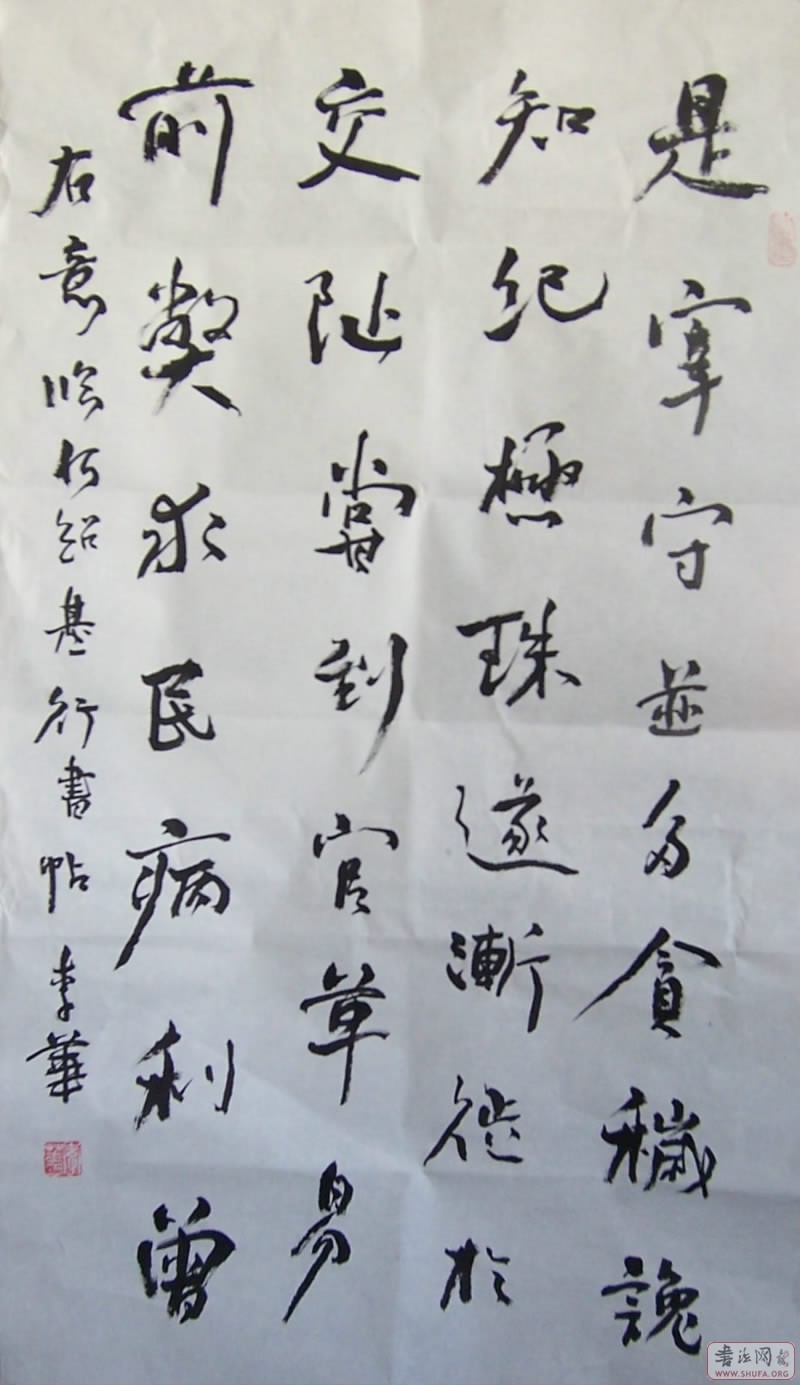 是宰守並多貪穢詭
知紀極珠遂漸徙於
交阯嘗到官革易
前獘求民病利曾
右意临何绍基行書帖 李華
書法网
WWW.SHUFA.ORG